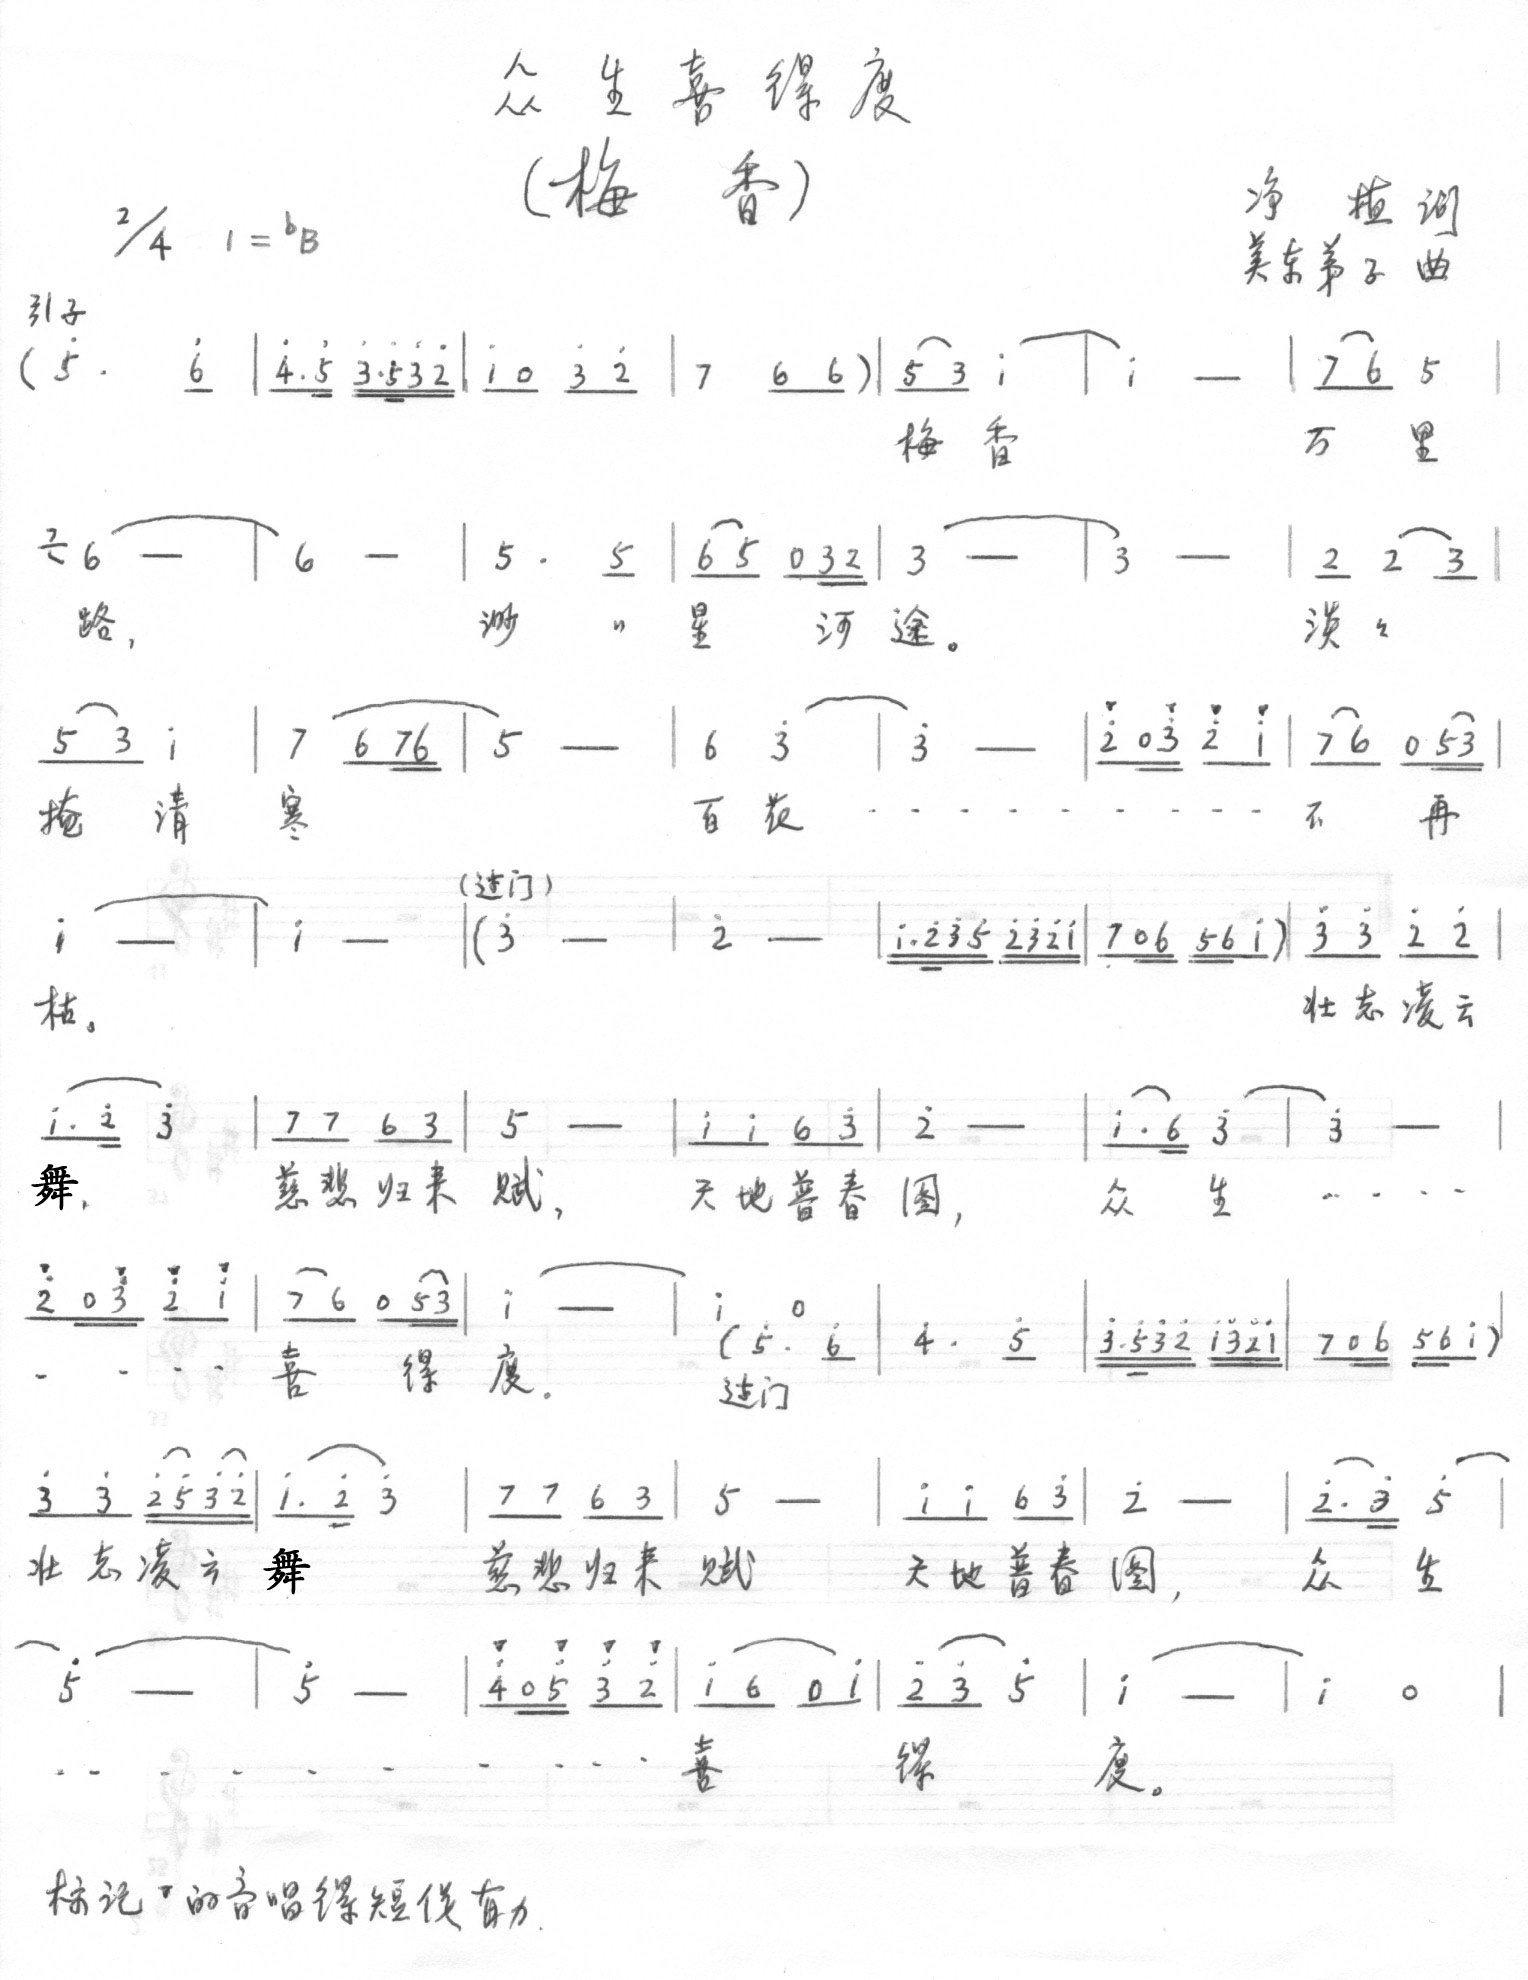 众生喜得度
(梅 香)
2/4 1=ᵇB
净 植 词
美东弟子 曲
引子
(5̇. 6̇ | 4̇.5̇ 3̇.5̇3̇2̇ | 1̇0 3̇2̇ | 7 66) | 53 1̇ | 1̇ — | 76 5 |
梅香 万里
7 6 — | 6 — | 5. 5 | 65 032 | 3 — | 3 — | 2 2 3 |
路, 渺〃星河途。 淡々
53 1̇ | 7 676 | 5 — | 6 3̇ | 3̇ — | 2̇03̇ 2̇1̇ | 76 053 |
掩清寒 百花 - - - - - - - - 不再
(过门)
1̇ — | 1̇ — | (3̇ — | 2̇ — | 1̇.2̇3̇5̇ 2̇3̇2̇1̇ | 706 561̇) | 3̇3̇ 2̇2̇ |
枯。 壮志凌云
1̇.2̇ 3̇ | 77 63 | 5 — | 1̇1̇ 63̇ | 2̇ — | 1̇.6 3̇ | 3̇ — |
舞, 慈悲归来赋, 天地普春图, 众生 - - - -
2̇03̇ 2̇1̇ | 76 053 | 1̇ — | 1̇ 0 |
(5̇. 6̇ | 4̇. 5̇ | 3̇.5̇3̇2̇ 1̇3̇2̇1̇ | 706 561̇) |
- - - - 喜得度。 过门
3̇3̇ 2̇5̇3̇2̇ | 1̇.2̇ 3̇ | 77 63 | 5 — | 1̇1̇ 63̇ | 2̇ — | 2̇.3̇ 5̇ |
壮志凌云舞 慈悲归来赋 天地普春图, 众生
5̇ — | 5̇ — | 4̇05̇ 3̇2̇ | 1̇6 01̇ | 2̇3̇ 5̇ | 1̇ — | 1̇ 0 |
- - - - - - - - - 喜得度。
标记▼的音唱得短促有力.